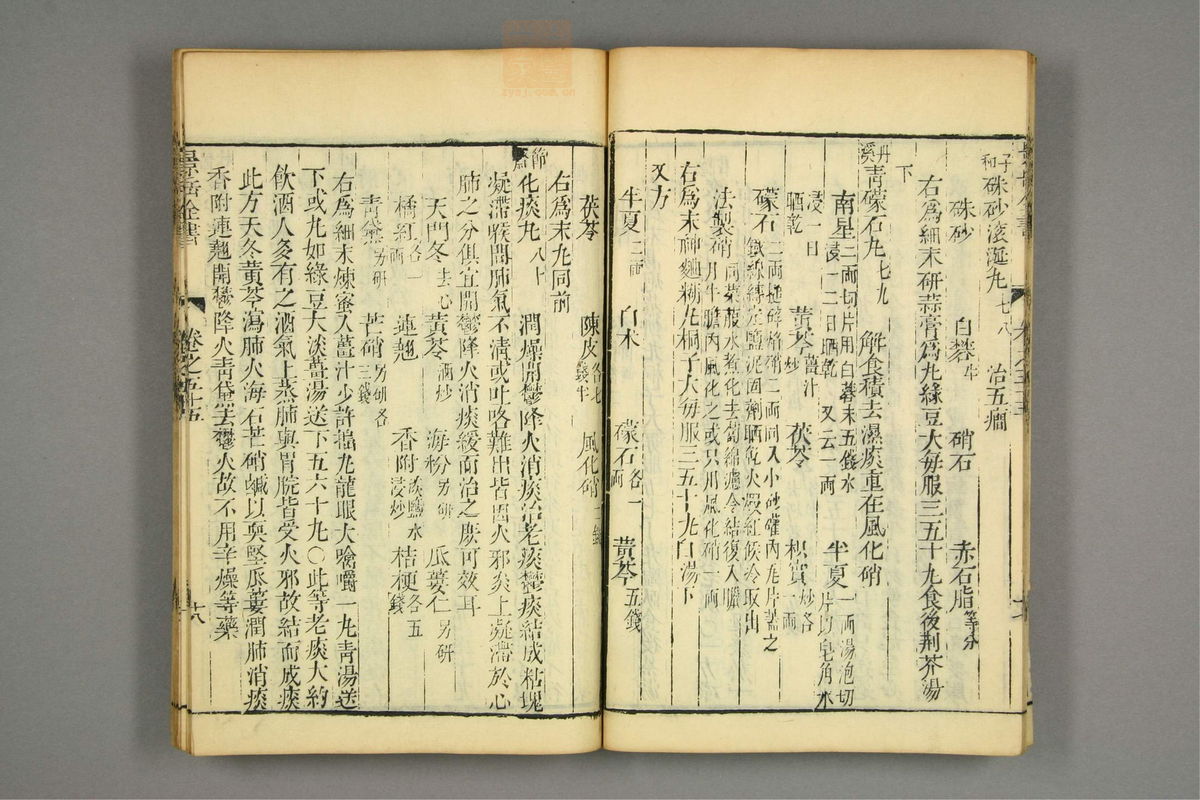 子和 硃砂滾涎丸 七八 治五癎
硃砂 白礬生 硝石 赤石脂等分
右爲細末研蒜膏爲丸綠豆大每服三五十丸食後荆芥湯
下
丹溪 青礞石丸七九 解食積去濕痰重在風化硝
南星二兩切片用白礬末五錢水浸一二日晒乾 又云一兩 半夏一兩湯泡切片以皂角水
浸一日晒乾 黄芩薑汁炒 茯苓 枳實炒各一兩
礞石二兩搥碎焰硝二兩同入小砂罐內瓦片蓋之鐵線縛定鹽泥固劑晒乾火煅紅候冷取出
法製硝同萊菔水煮化去蔔綿濾令結復入臘月牛膽內風化之或只用風化硝一兩
右爲末神麯糊丸桐子大每服三五十丸白湯下
又方
半夏二兩 白术 礞石各一兩 黄芩五錢
茯苓 陳皮各七錢半 風化硝二錢
右爲末丸同前
節齋 化痰丸八十 潤燥開鬱降火消痰治老痰鬱痰結成粘塊
凝滯喉間肺氣不清或吐咯難出皆因火邪炎上凝滯於心
肺之分俱宜開鬱降火消痰緩而治之庶可效耳
天門冬去心 黄芩酒炒 海粉另研 瓜蔞仁另研
橘紅各一兩 連翹 香附淡鹽水浸炒 桔梗各五錢
青黛另研 芒硝另研各三錢
右爲細末煉蜜入薑汁少許搗丸龍眼大噙嚼一丸青湯送
下或丸如綠豆大淡薑湯送下五六十丸○此等老痰大約
飲酒人多有之酒氣上蒸肺與胃脘皆受火邪故結而成痰
此方天冬黄芩瀉肺火海石芒硝鹹以耎堅瓜蔞潤肺消痰
香附連翹開鬱降火青黛去鬱火故不用辛燥等藥
景岳全書 卷之五十五 十八